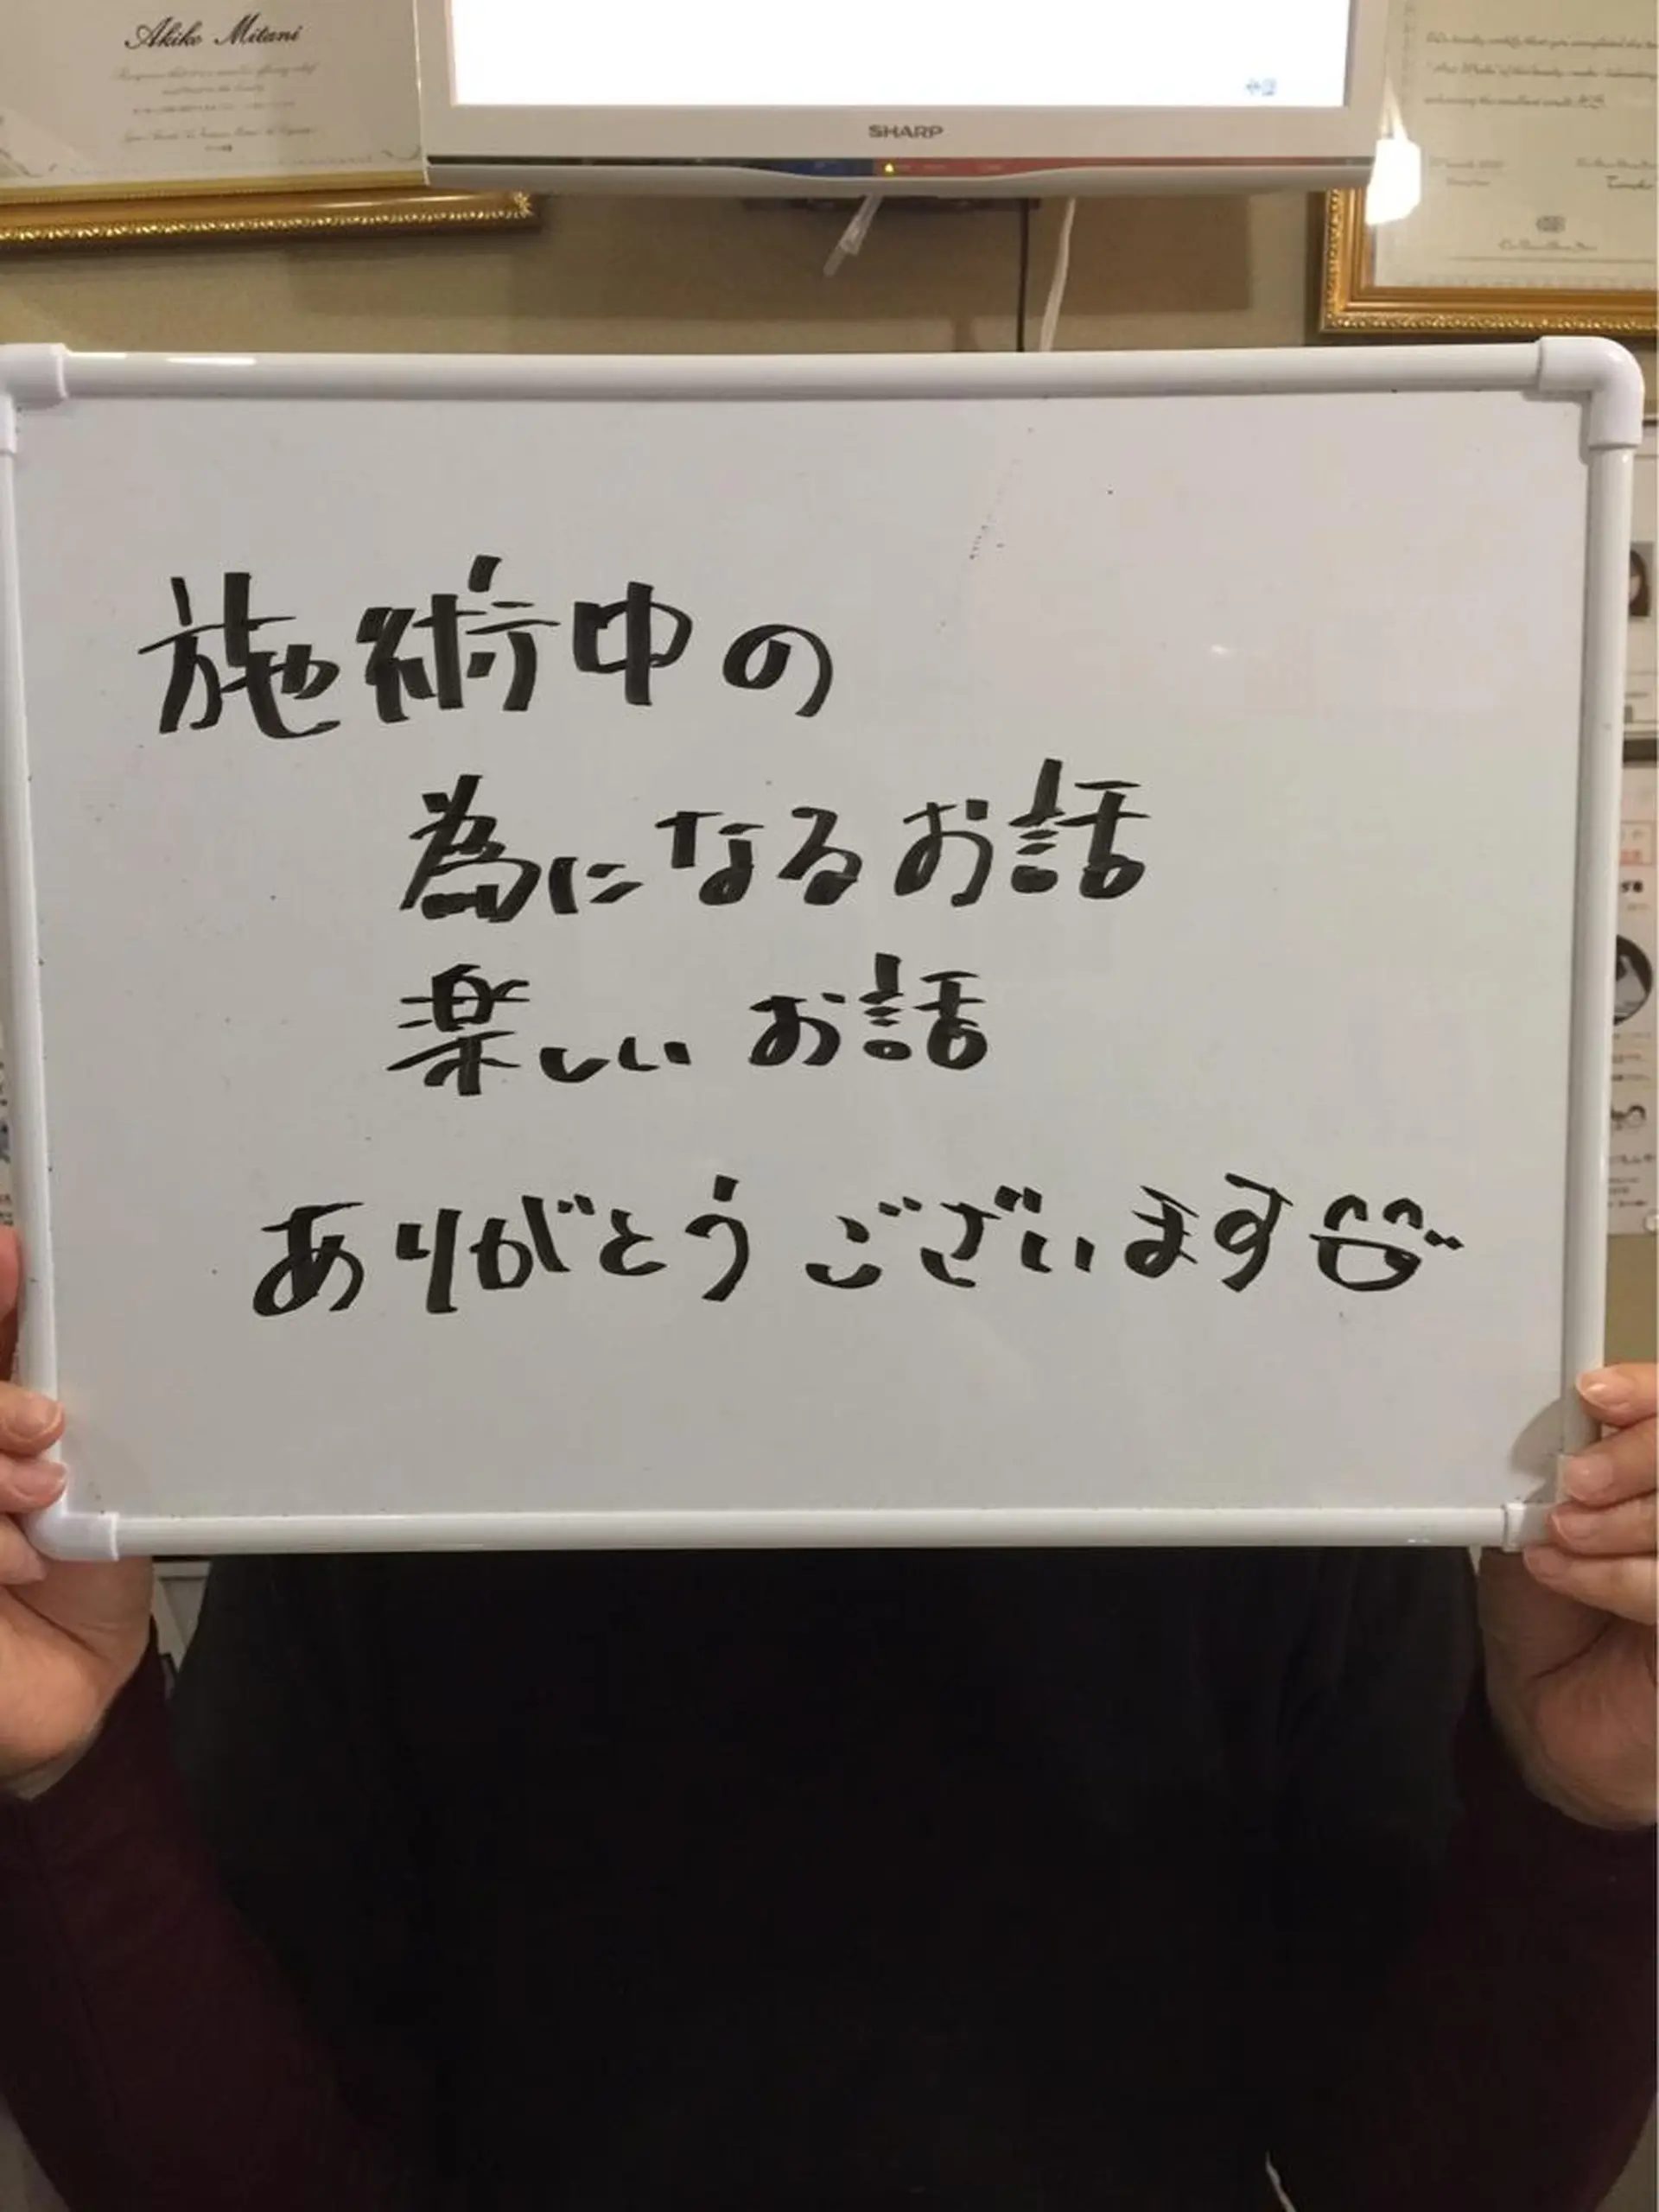 Akiko Mitani
SHARP
施術中の
為になるお話
楽しいお話
ありがとうございます